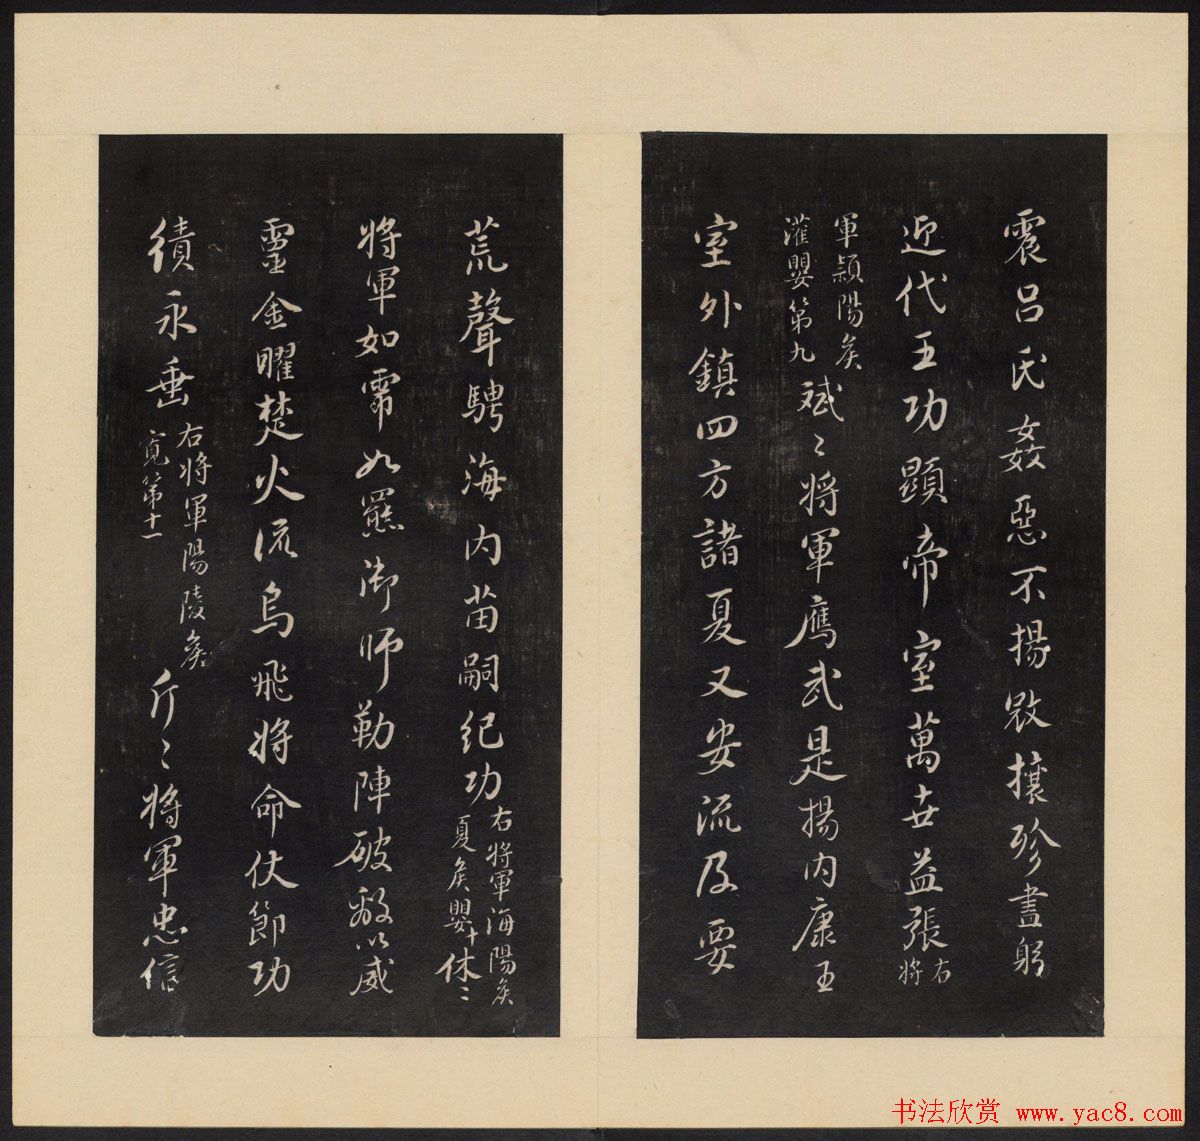 震呂氏姦惡不揚攘珍盡躬
迎代王功顯帝室萬世益張右
將
軍潁陽侯
灌嬰第九
斌〻將軍鷹武是揚內康王
室外鎮四方諸夏乂安流及要
荒聲騁海內苗嗣紀功
右將軍海陽侯
夏侯嬰十
休〻
將軍如虎如羆御師勒陣破敵以威
靈金曜楚火流烏飛將命仗節功
績永垂
右將軍陽陵侯
寬第十一
斤〻將軍忠信
书法欣赏 www.yac8.com